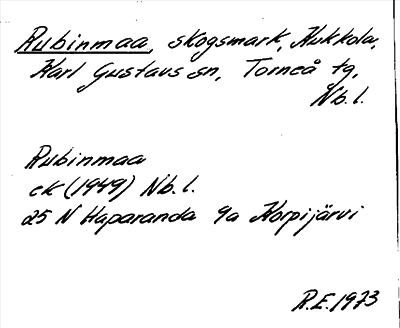 Rubinmaa, skogsmark, Kukkola,
Karl Gustavs sn, Torneå tg,
Nb. l.
Rubinmaa
ek (1949) Nb. l.
25 N Haparanda 9a Korpijärvi
R.E. 1973